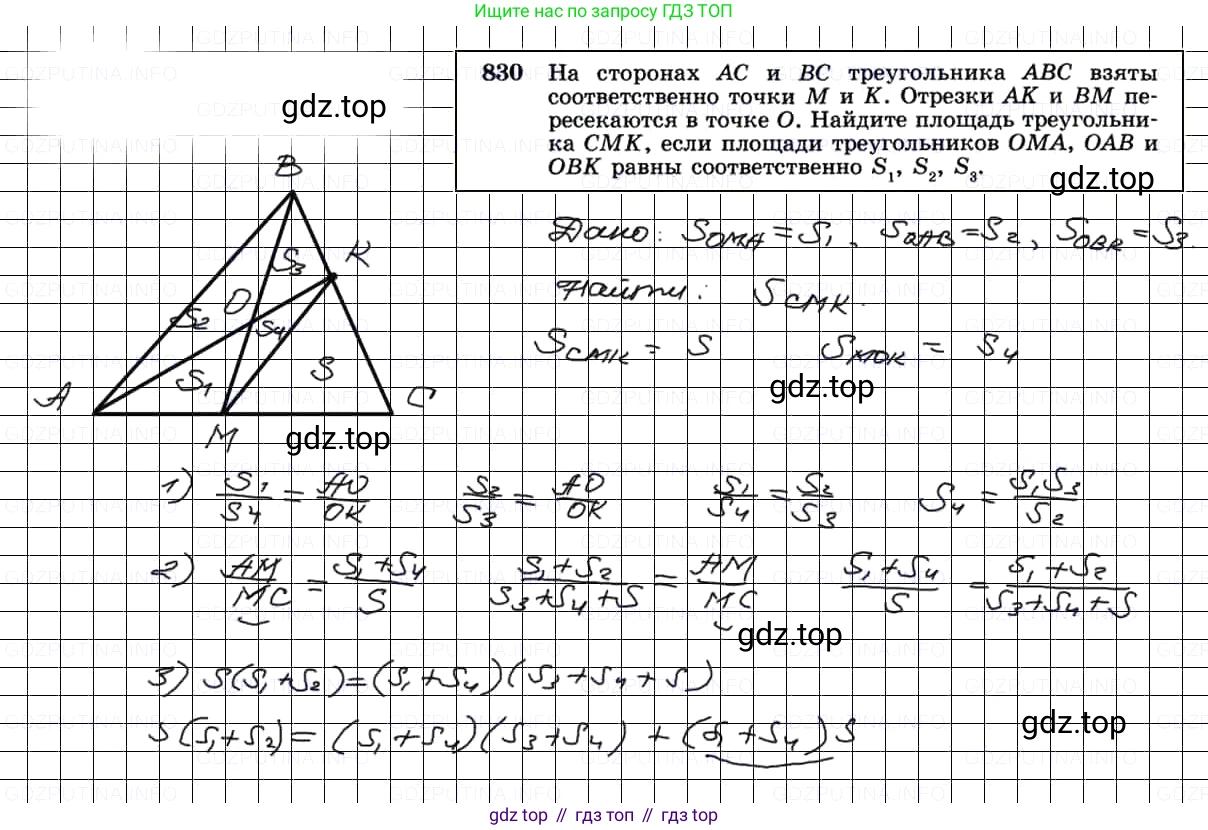 Ищите нас по запросу ГДЗ ТОП
830 На сторонах AC и BC треугольника ABC взяты
соответственно точки M и K. Отрезки AK и BM пе-
ресекаются в точке O. Найдите площадь треугольни-
ка CMK, если площади треугольников OMA, OAB и
OBK равны соответственно S₁, S₂, S₃.
gdz.top
gdz.top
B
K
S₃
O
S₂
S₄
S₁
S
A
M
C
gdz.top
Дано: S_OMA = S₁, S_OAB = S₂, S_OBK = S₃.
Найти: S_CMK.
S_CMK = S S_MOK = S₄
gdz.top
1) S₁/S₄ = AO/OK S₂/S₃ = AO/OK S₁/S₄ = S₂/S₃ S₄ = S₁S₃/S₂
2) AM/MC = (S₁+S₄)/S (S₁+S₂)/(S₃+S₄+S) = AM/MC (S₁+S₄)/S = (S₁+S₂)/(S₃+S₄+S)
gdz.top
3) S(S₁+S₂)=(S₁+S₄)(S₃+S₄+S)
S(S₁+S₂)=(S₁+S₄)(S₃+S₄)+(S₁+S₄)S
gdz.top
gdz top // гдз топ // gdz top